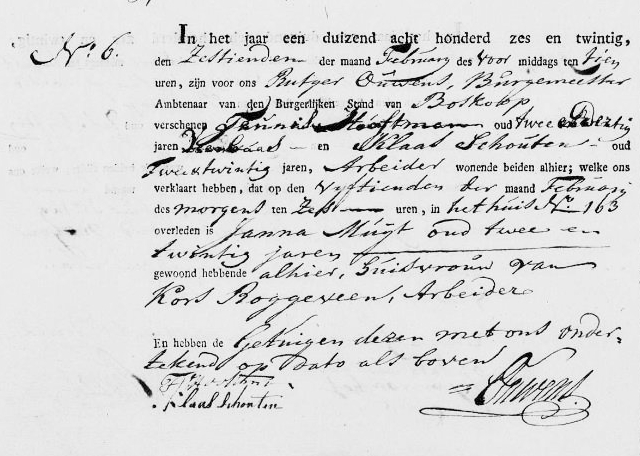 No. 6.
In het jaar een duizend acht honderd zes en twintig,
den Zestienden der maand Februarij des voor middags ten tien
uren, zijn voor ons Rutger Ouwens, Burgemeester
Ambtenaar van den Burgerlijken Stand van Boskoop
verschenen Teunis Hooftman oud twee en Dertig
jaren en Klaas Schouten oud
Tweeentwintig jaren, Arbeider wonende beiden alhier; welke ons
verklaart hebben, dat op den Vijftienden der maand Februarij
des morgens ten Zes uren, in het huis No. 163
overleden is Janna Muijt oud twee en
twintig jaren
gewoond hebbende alhier, huisvrouw van
Kors Roggeveen, Arbeider
En hebben de Getuigen dezen met ons onder-
tekend op dato als boven
Klaas Schouten
Ouwens